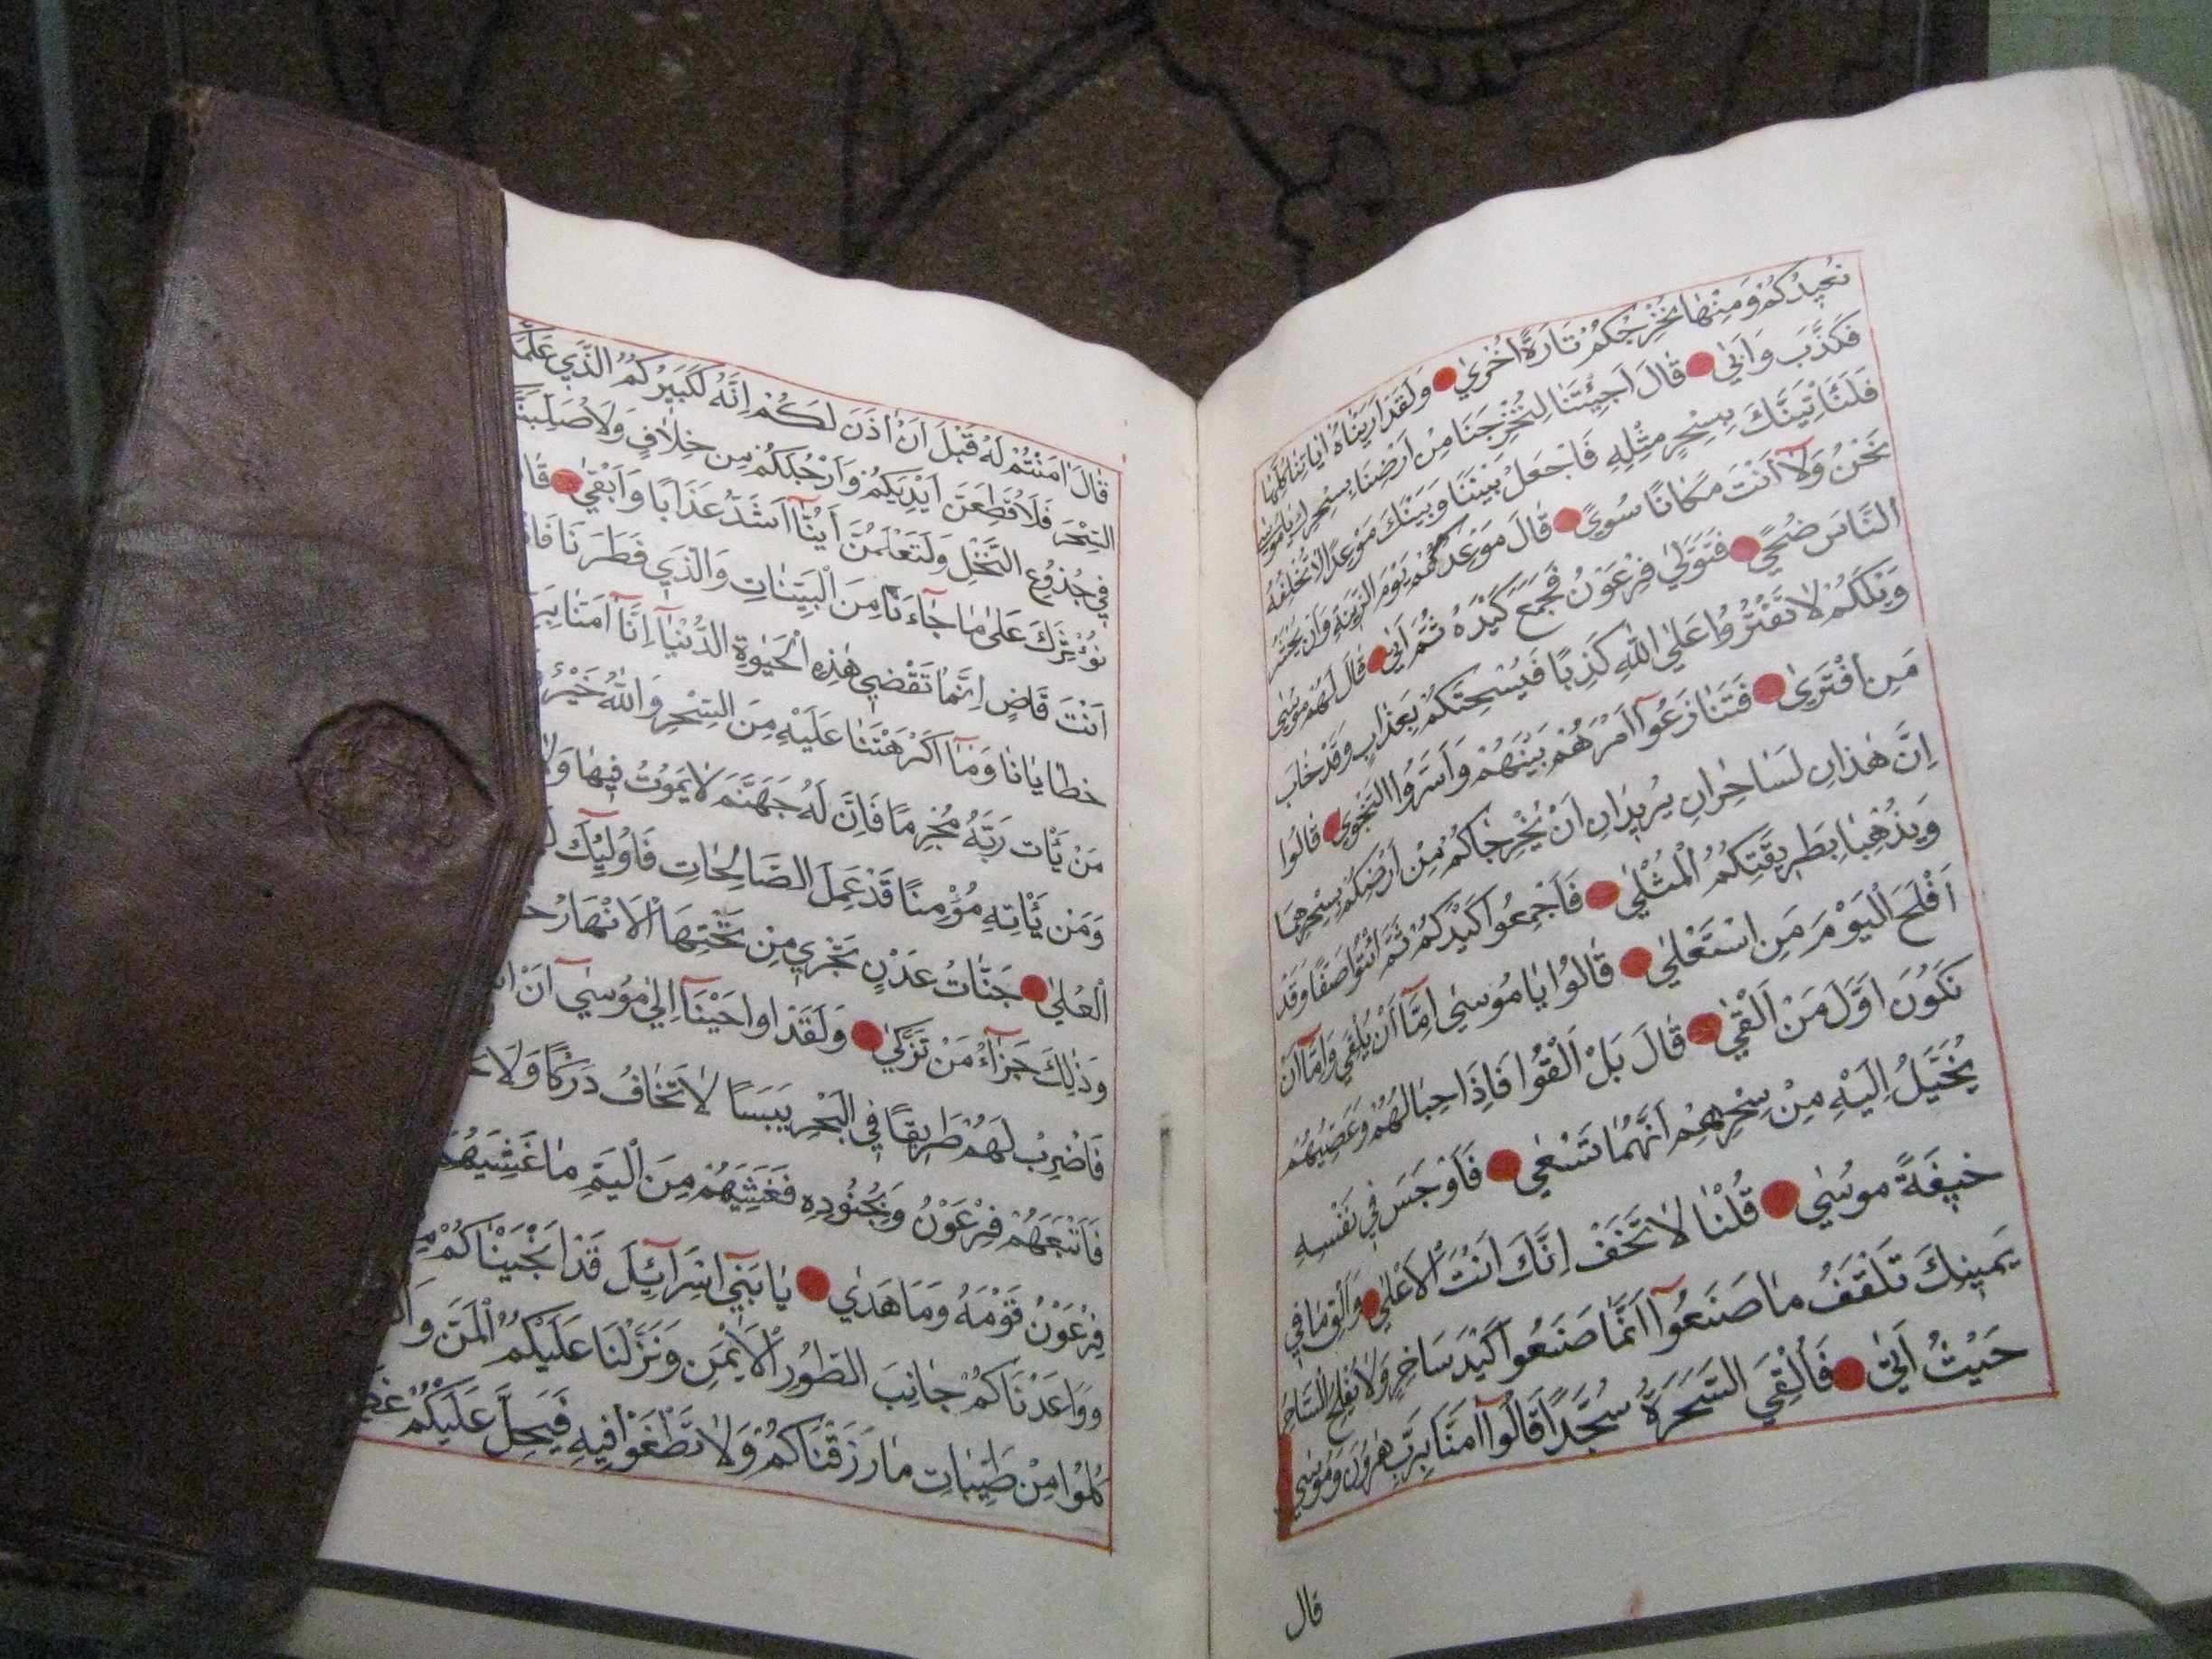 نُعِيدُكُمْ وَمِنْهَا نُخْرِجُكُمْ تَارَةً اُخْرٰي وَلَقَدْ اَرَيْنَاهُ اٰيَاتِنَا كُلَّهَا
فَكَذَّبَ وَاَبٰي قَالَ اَجِئْتَنَا لِتُخْرِجَنَا مِنْ اَرْضِنَا بِسِحْرِكَ يَا مُوسٰي
فَلَنَأْتِيَنَّكَ بِسِحْرٍ مِثْلِهِ فَاجْعَلْ بَيْنَنَا وَبَيْنَكَ مَوْعِدًا لَا نُخْلِفُهُ
نَحْنُ وَلَا اَنْتَ مَكَانًا سُوًي قَالَ مَوْعِدُكُمْ يَوْمُ الزِّينَةِ وَاَنْ يُحْشَرَ
النَّاسُ ضُحًي فَتَوَلّٰي فِرْعَوْنُ فَجَمَعَ كَيْدَهُ ثُمَّ اَتٰي قَالَ لَهُمْ مُوسٰي
وَيْلَكُمْ لَا تَفْتَرُوا عَلَي اللّٰهِ كَذِبًا فَيُسْحِتَكُمْ بِعَذَابٍ وَقَدْ خَابَ
مَنِ افْتَرٰي فَتَنَازَعُوا اَمْرَهُمْ بَيْنَهُمْ وَاَسَرُّوا النَّجْوٰي قَالُوا
اِنَّ هٰذَانِ لَسَاحِرَانِ يُرِيدَانِ اَنْ يُخْرِجَاكُمْ مِنْ اَرْضِكُمْ بِسِحْرِهِمَا
وَيَذْهَبَا بِطَرِيقَتِكُمُ الْمُثْلٰي فَاَجْمِعُوا كَيْدَكُمْ ثُمَّ ائْتُوا صَفًّا وَقَدْ
اَفْلَحَ الْيَوْمَ مَنِ اسْتَعْلٰي قَالُوا يَا مُوسٰي اِمَّا اَنْ تُلْقِيَ وَاِمَّا اَنْ
نَكُونَ اَوَّلَ مَنْ اَلْقٰي قَالَ بَلْ اَلْقُوا فَاِذَا حِبَالُهُمْ وَعِصِيُّهُمْ
يُخَيَّلُ اِلَيْهِ مِنْ سِحْرِهِمْ اَنَّهَا تَسْعٰي فَاَوْجَسَ فِي نَفْسِهِ
خِيفَةً مُوسٰي قُلْنَا لَا تَخَفْ اِنَّكَ اَنْتَ الْاَعْلٰي وَاَلْقِ مَا فِي
يَمِينِكَ تَلْقَفْ مَا صَنَعُوا اِنَّمَا صَنَعُوا كَيْدُ سَاحِرٍ وَلَا يُفْلِحُ السَّاحِرُ
حَيْثُ اَتٰي فَاُلْقِيَ السَّحَرَةُ سُجَّدًا قَالُوا اٰمَنَّا بِرَبِّ هٰرُونَ وَمُوسٰي
قال
قَالَ اٰمَنْتُمْ لَهُ قَبْلَ اَنْ اٰذَنَ لَكُمْ اِنَّهُ لَكَبِيرُكُمُ الَّذِي عَلَّمَ
السِّحْرَ فَلَاُقَطِّعَنَّ اَيْدِيَكُمْ وَاَرْجُلَكُمْ مِنْ خِلَافٍ وَلَاُصَلِّبَنَّ
فِي جُذُوعِ النَّخْلِ وَلَتَعْلَمُنَّ اَيُّنَا اَشَدُّ عَذَابًا وَاَبْقٰي قَا
نُؤْثِرَكَ عَلٰي مَا جَاءَنَا مِنَ الْبَيِّنَاتِ وَالَّذِي فَطَرَنَا فَا
اَنْتَ قَاضٍ اِنَّمَا تَقْضِي هٰذِهِ الْحَيٰوةَ الدُّنْيَا اِنَّا اٰمَنَّا بِرَ
خَطَايَانَا وَمَا اَكْرَهْتَنَا عَلَيْهِ مِنَ السِّحْرِ وَاللّٰهُ خَيْرٌ
مَنْ يَأْتِ رَبَّهُ مُجْرِمًا فَاِنَّ لَهُ جَهَنَّمَ لَا يَمُوتُ فِيهَا وَلَا
وَمَنْ يَأْتِهِ مُؤْمِنًا قَدْ عَمِلَ الصَّالِحَاتِ فَاُولٰئِكَ
الْعُلٰي جَنَّاتُ عَدْنٍ تَجْرِي مِنْ تَحْتِهَا الْاَنْهَارُ
وَذٰلِكَ جَزَاءُ مَنْ تَزَكّٰي وَلَقَدْ اَوْحَيْنَا اِلٰي مُوسٰي اَنْ
فَاضْرِبْ لَهُمْ طَرِيقًا فِي الْبَحْرِ يَبَسًا لَا تَخَافُ دَرَكًا وَلَا
فَاَتْبَعَهُمْ فِرْعَوْنُ وَبِجُنُودِهِ فَغَشِيَهُمْ مِنَ الْيَمِّ مَا غَشِيَهُمْ
فِرْعَوْنُ قَوْمَهُ وَمَا هَدٰي يَا بَنِي اِسْرَائِلَ قَدْ اَنْجَيْنَاكُمْ
وَوَاعَدْنَاكُمْ جَانِبَ الطُّورِ الْاَيْمَنَ وَنَزَّلْنَا عَلَيْكُمُ الْمَنَّ
كُلُوا مِنْ طَيِّبَاتِ مَا رَزَقْنَاكُمْ وَلَا تَطْغَوْا فِيهِ فَيَحِلَّ عَلَيْكُمْ